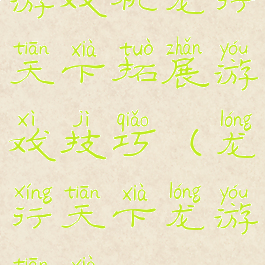 游戏 龙行
tiān xià tuò zhǎn yóu
天下拓展游
xì jì qiǎo lóng
戏技巧（龙
xíng tiān xià lóng yóu
行天下龙游
tiān xià